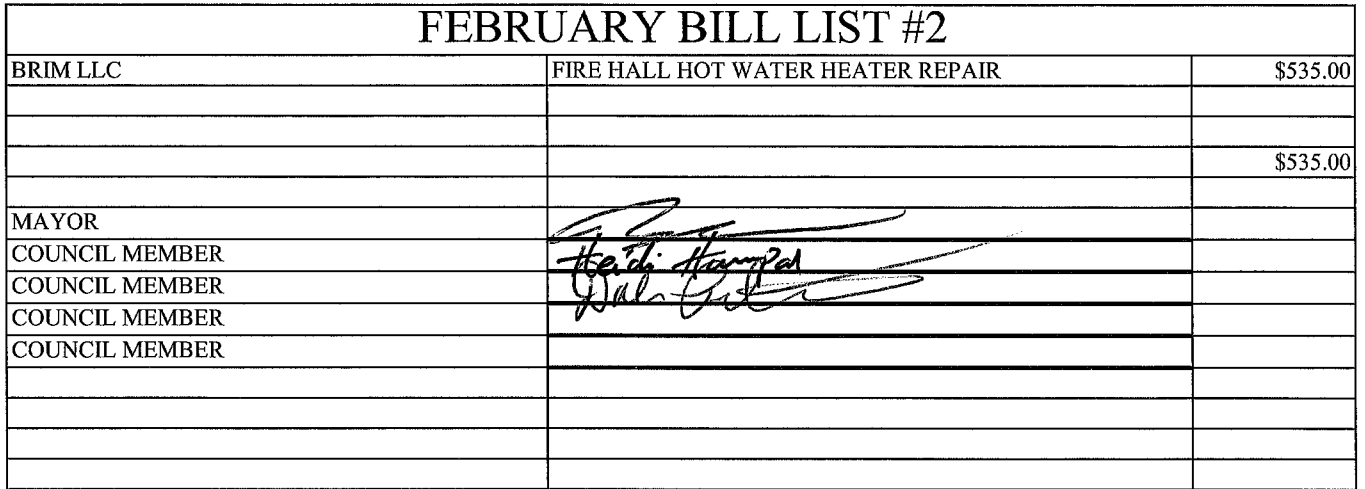 FEBRUARY BILL LIST #2
BRIM LLC FIRE HALL HOT WATER HEATER REPAIR $535.00
$535.00
MAYOR
COUNCIL MEMBER Heidi
COUNCIL MEMBER
COUNCIL MEMBER
COUNCIL MEMBER